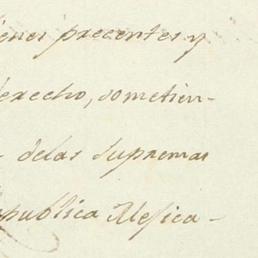 ienes precentes y
derecho, sometien-
delas supremas
publica Mesica-